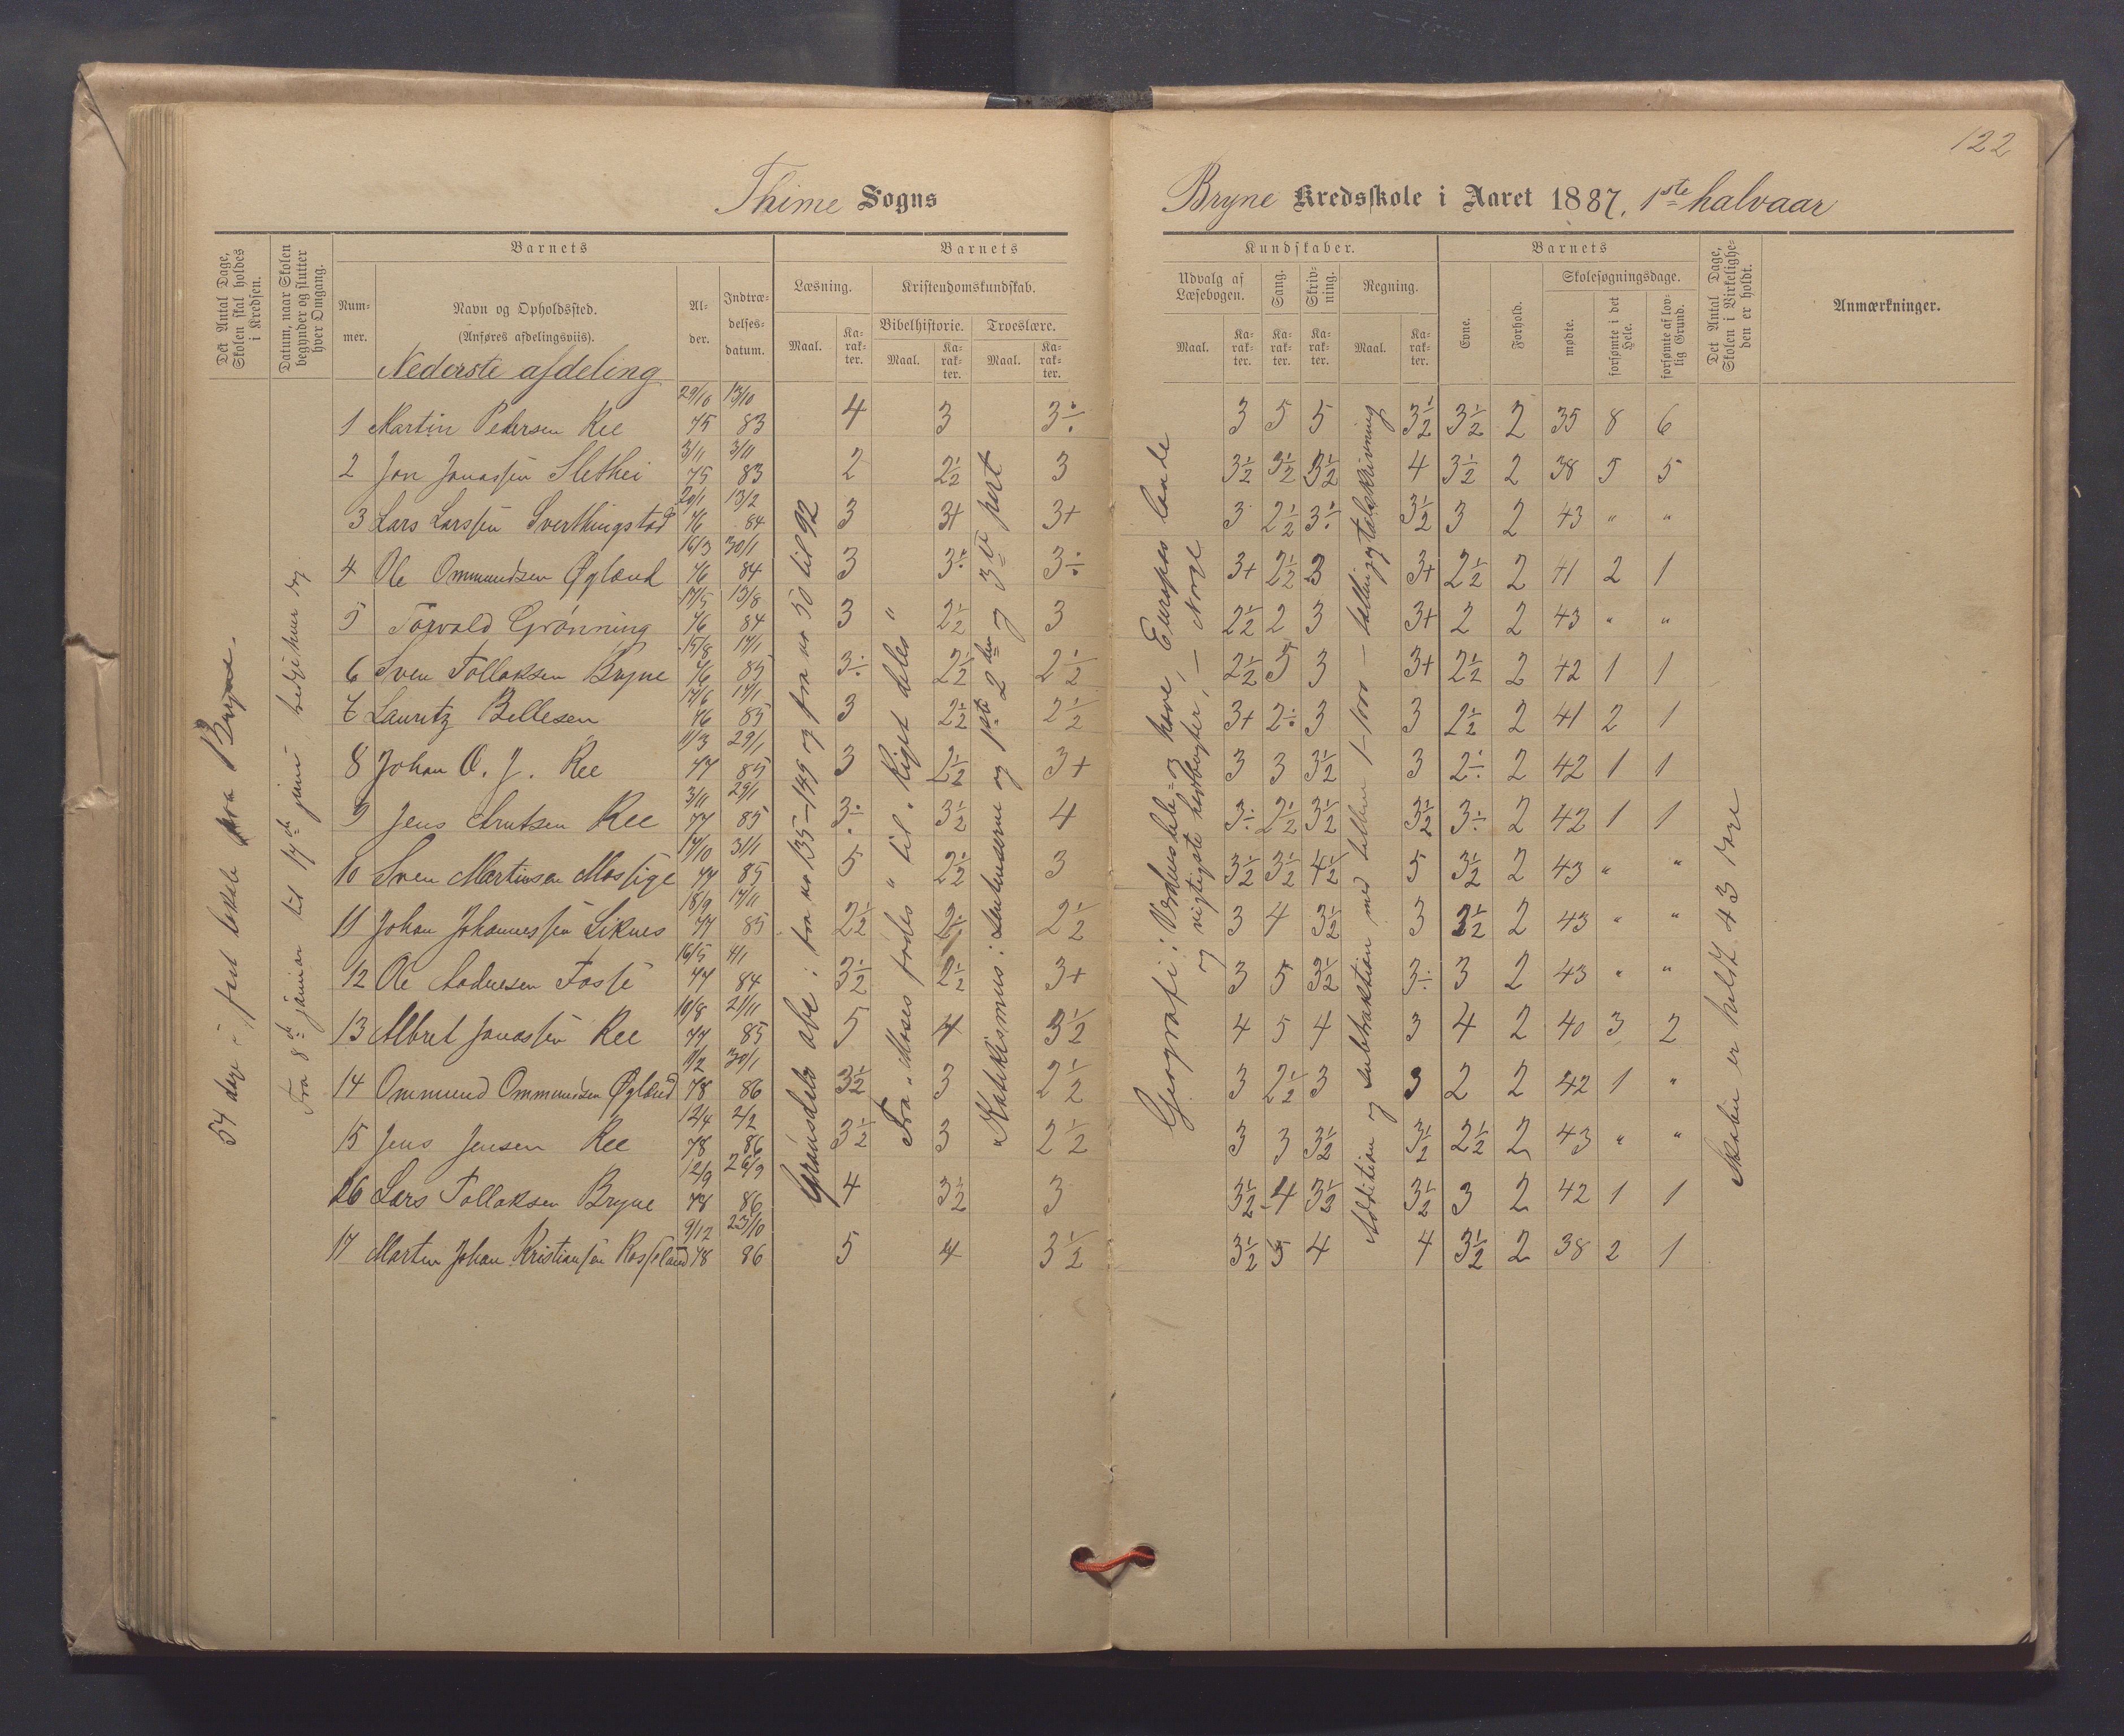 122
Thime Sogns
Bryne Kredsskole i Aaret 1887. 1ste halvaar
Det Antal Dage, Skolen skal holdes i Kredsen.
Datum, naar Skolen begynder og slutter hver Omgang.
Barnets
Nummer.
Navn og Opholdssted.
(Anføres afdelingsviis).
Alder.
Indtrædelsesdatum.
Barnets
Læsning.
Maal.
Karakter.
Kristendomskundskab.
Bibelhistorie.
Maal.
Karakter.
Troeslære.
Maal.
Karakter.
Kundskaber.
Udvalg af Læsebogen.
Maal.
Karakter.
Sang.
Karakter.
Skrivning.
Karakter.
Regning.
Maal.
Karakter.
Barnets
Evne.
Forhold.
Skolesøgningsdage.
mødte.
forsømte i det Hele.
forsømte af lovlig Grund.
Det Antal Dage, Skolen i Virkeligheden er holdt.
Anmærkninger.
Nederste afdeling
1 Martin Pedersen Ree 29/10 75 13/10 83 4 3 3÷ 3 5 5 3½ 3½ 2 35 8 6
2 Jon Jonassen Slethei 3/11 75 3/11 83 2 2½ 3 3½ 3½ 3½ 4 3½ 2 38 5 5
3 Lars Larssen Sverthingstad 20/1 76 13/2 84 3 3+ 3+ 3 2½ 3÷ 3½ 3 2 43 " "
4 Ole Ommundsen Øgland 16/3 76 30/1 84 3 3÷ 3÷ 3+ 2½ 3 3+ 2½ 2 41 2 1
5 Torvald Grønning 17/5 76 13/8 84 3 2½ 3 2½ 2 3 3+ 2 2 43 " "
6 Sven Tollaksen Bryne 15/8 76 17/1 85 3÷ 2½ 2½ 2½ 5 3 3+ 2½ 2 42 1 1
7 Lauritz Bellesen 17/6 76 17/1 85 3 2½ 2½ 3+ 2÷ 3 3 2½ 2 41 2 1
8 Johan O. J. Ree 11/3 77 29/1 85 3 2½ 3+ 3 3 3½ 3 2÷ 2 42 1 1
9 Jens Arntsen Ree 3/11 77 29/1 85 3÷ 3½ 4 3÷ 2½ 3½ 3½ 3÷ 2 42 1 1
10 Sven Martinsen Mossige 17/10 77 3/11 85 5 2½ 3 3½ 3½ 4½ 5 3½ 2 43 " "
11 Johan Johannessen Liknes 18/9 77 17/11 85 2½ 2÷ 2½ 3 4 3½ 3 3½ 2 43 " "
12 Ole Andresen Fosse 16/5 77 4/1 84 3½ 2½ 3+ 3 5 3½ 3÷ 3 2 43 " "
13 Albret Jonassen Ree 10/8 77 21/11 85 5 4 3½ 4 5 4 3 4 2 40 3 2
14 Ommund Ommundsen Øgland 11/2 78 30/1 86 3½ 3 2½ 3 2½ 3 3 2 2 42 1 "
15 Jens Jensen Ree 12/4 78 2/2 86 3½ 3 2½ 3 3 3½ 3½ 2½ 2 43 " "
16 Lars Tollaksen Bryne 12/9 78 26/9 86 4 3½ 3 3½ 4 3½ 3½ 3 2 42 1 1
17 Martin Johan Kristiansen Rosseland 9/12 78 23/10 86 5 4 3½ 3½ 5 4 4 3½ 2 38 2 1
54 dage i fast lokale paa Bryne
Fra 8de januar til 17de juni, begge
abc: fra no 135-149 og fra no 50 til 92
Fra "Moses fødes" til "Riget deles"
Katekismus: og 1ste 2den og 3die part
Geografi: Verdensdele og have, Europas lande
og vigtigste hovedbyer, – Norge
Addition og subtraktion med tallene 1-1000 – tælling og talskrivning
Skolen er holdt 43 dage